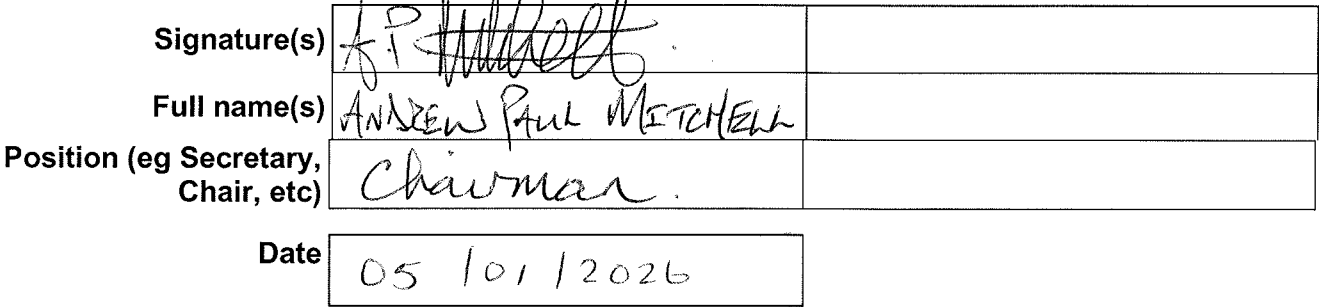 Signature(s) A P Mitchell
Full name(s) ANDREW PAUL MITCHELL
Position (eg Secretary,
Chair, etc) Chairman.
Date 05 / 01 / 2026